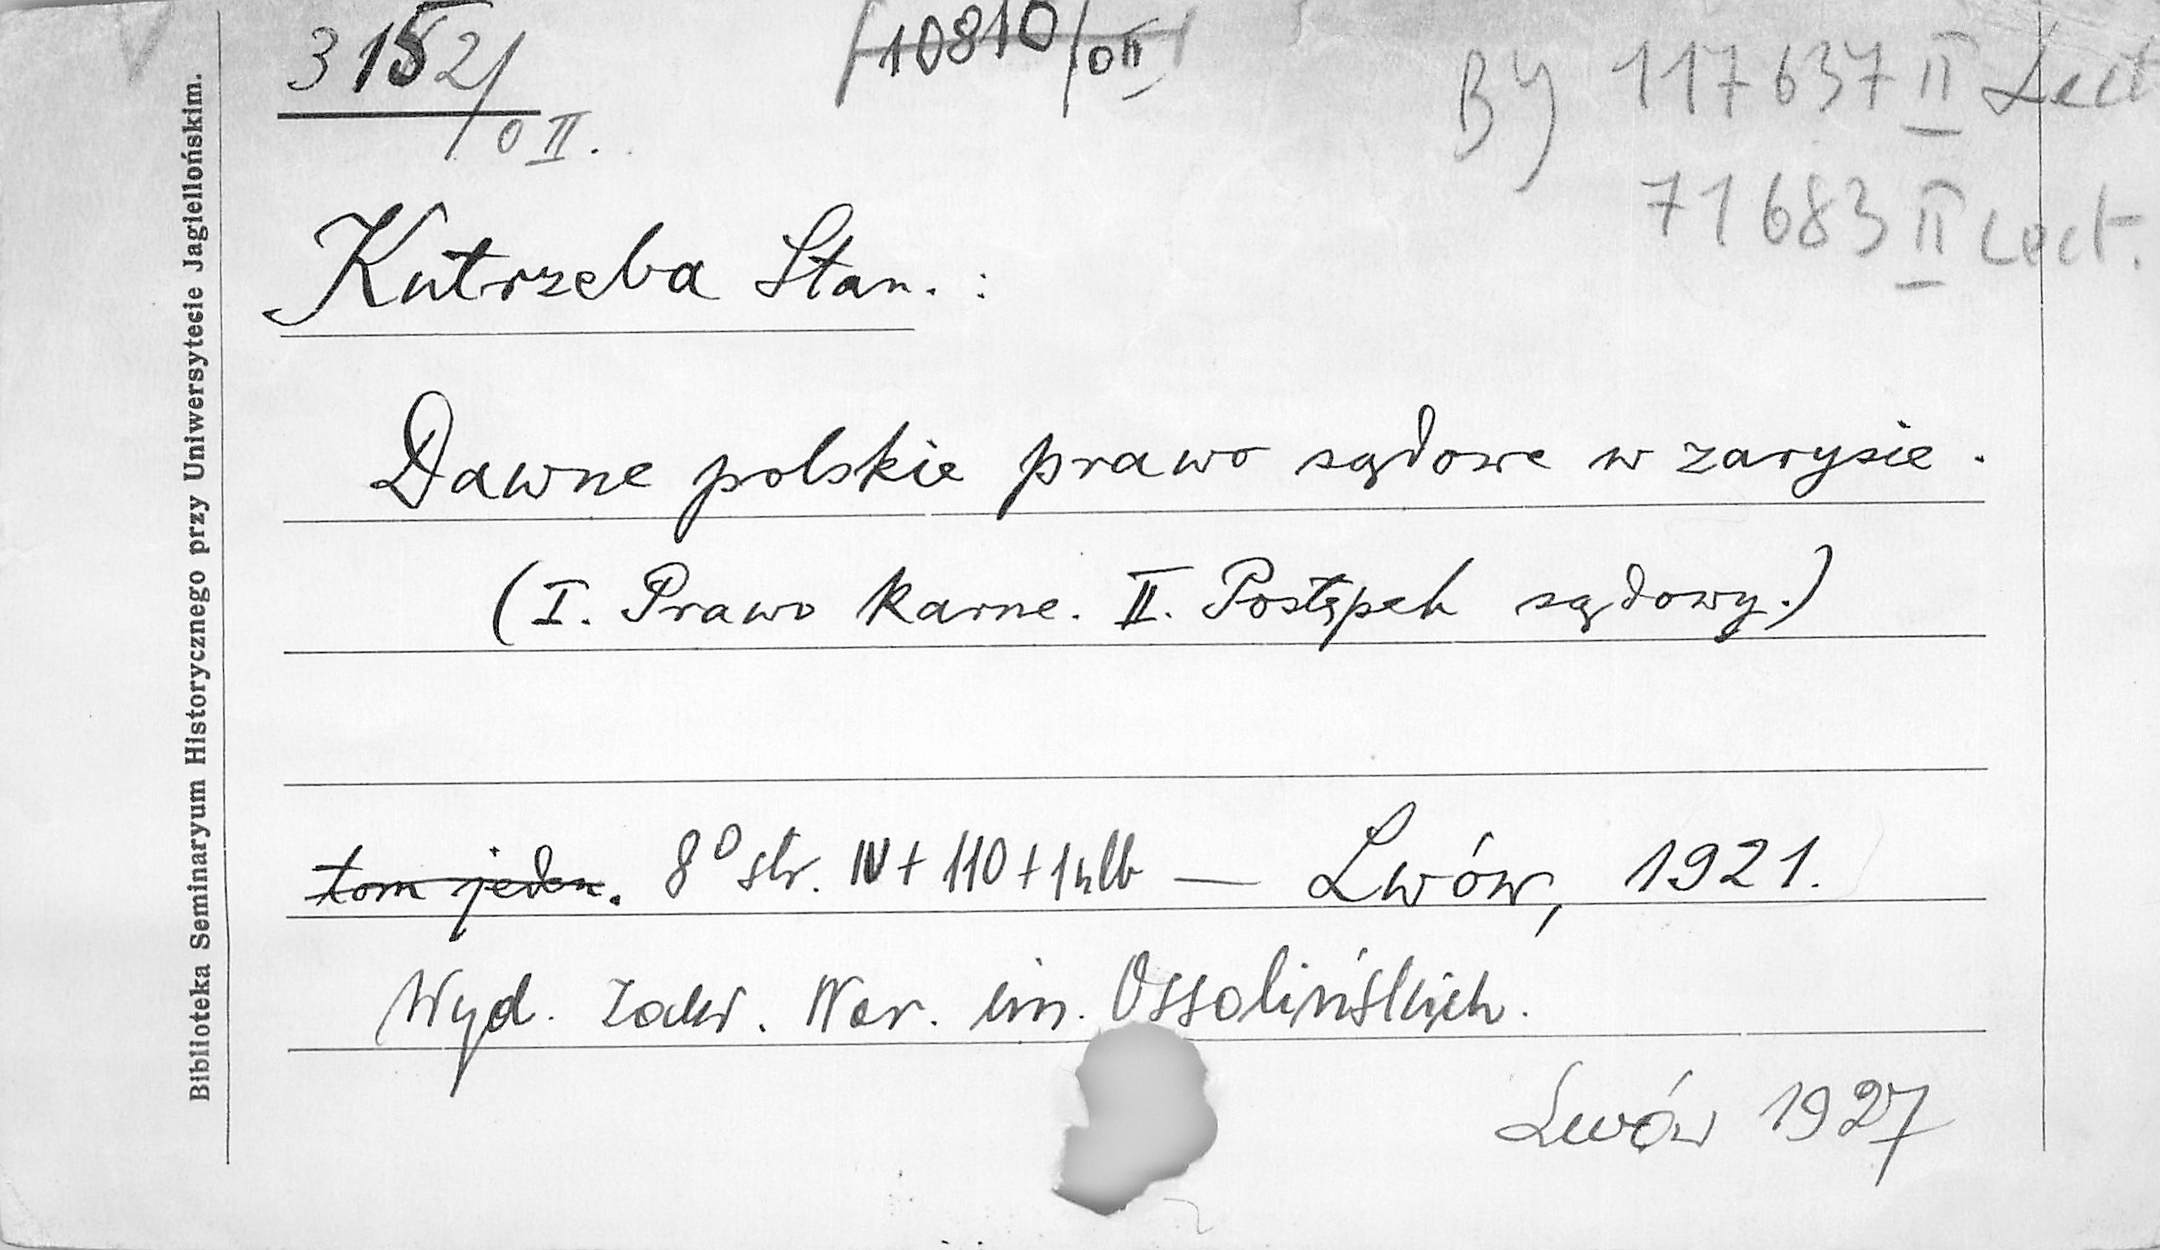 3152/
0 II.
10810/0II
By 117637 II Lect
71683 II Lect.
Biblioteka Seminaryum Historycznego przy Uniwersytecie Jagiellońskim.
Kutrzeba Stan. :
Dawne polskie prawo sądowe w zarysie.
(I. Prawo karne. II. Postępek sądowy.)
tom jeden. 8° str. IV + 110 + 1 nlb — Lwów, 1921.
Wyd. Zakł. Nar. im. Ossolińskich.
Lwów 1927